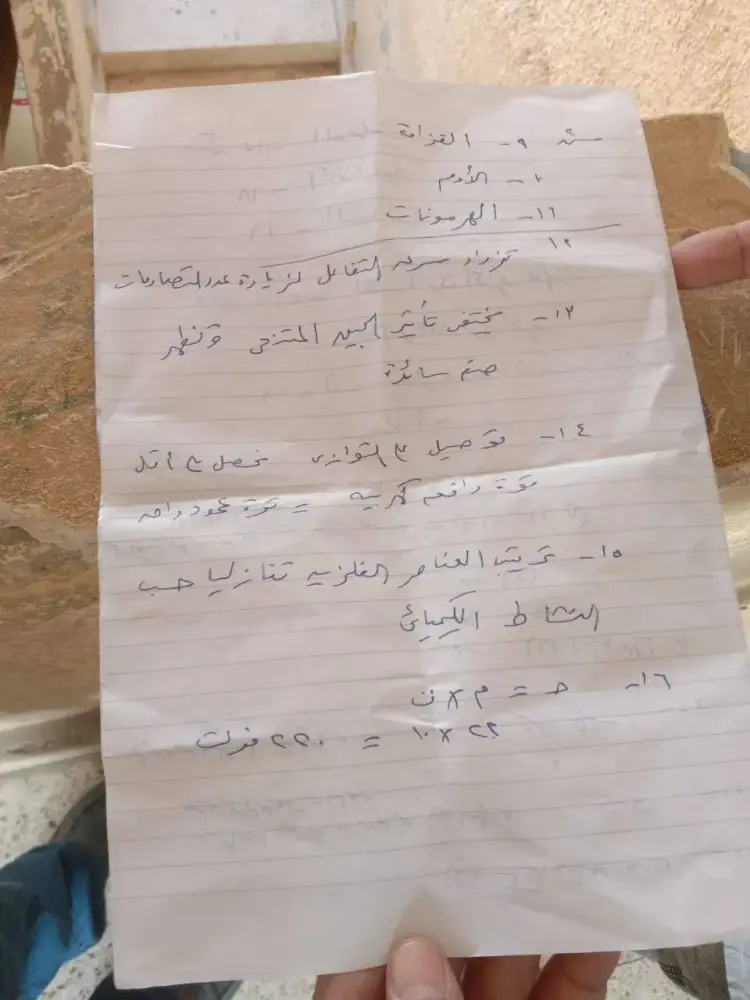 س ٩- القزامة
١٠- الأورم
١١- الهرمونات
١٢ تزداد سرعة التفاعل لزيادة عدد التصادمات
١٣- يختفى تأثير الجين المتنحى وتظهر
صفه سائدة
١٤- توصيل ع التوازى نحصل ع أقل
قوة دافعه كهربيه = قوة عمود واحد
١٥- ترتيب العناصر الفلزيه تنازليا حسب
النشاط الكيميائى
١٦- حـ = م × ت
٢٢ × ١٠ = ٢٢٠ فولت